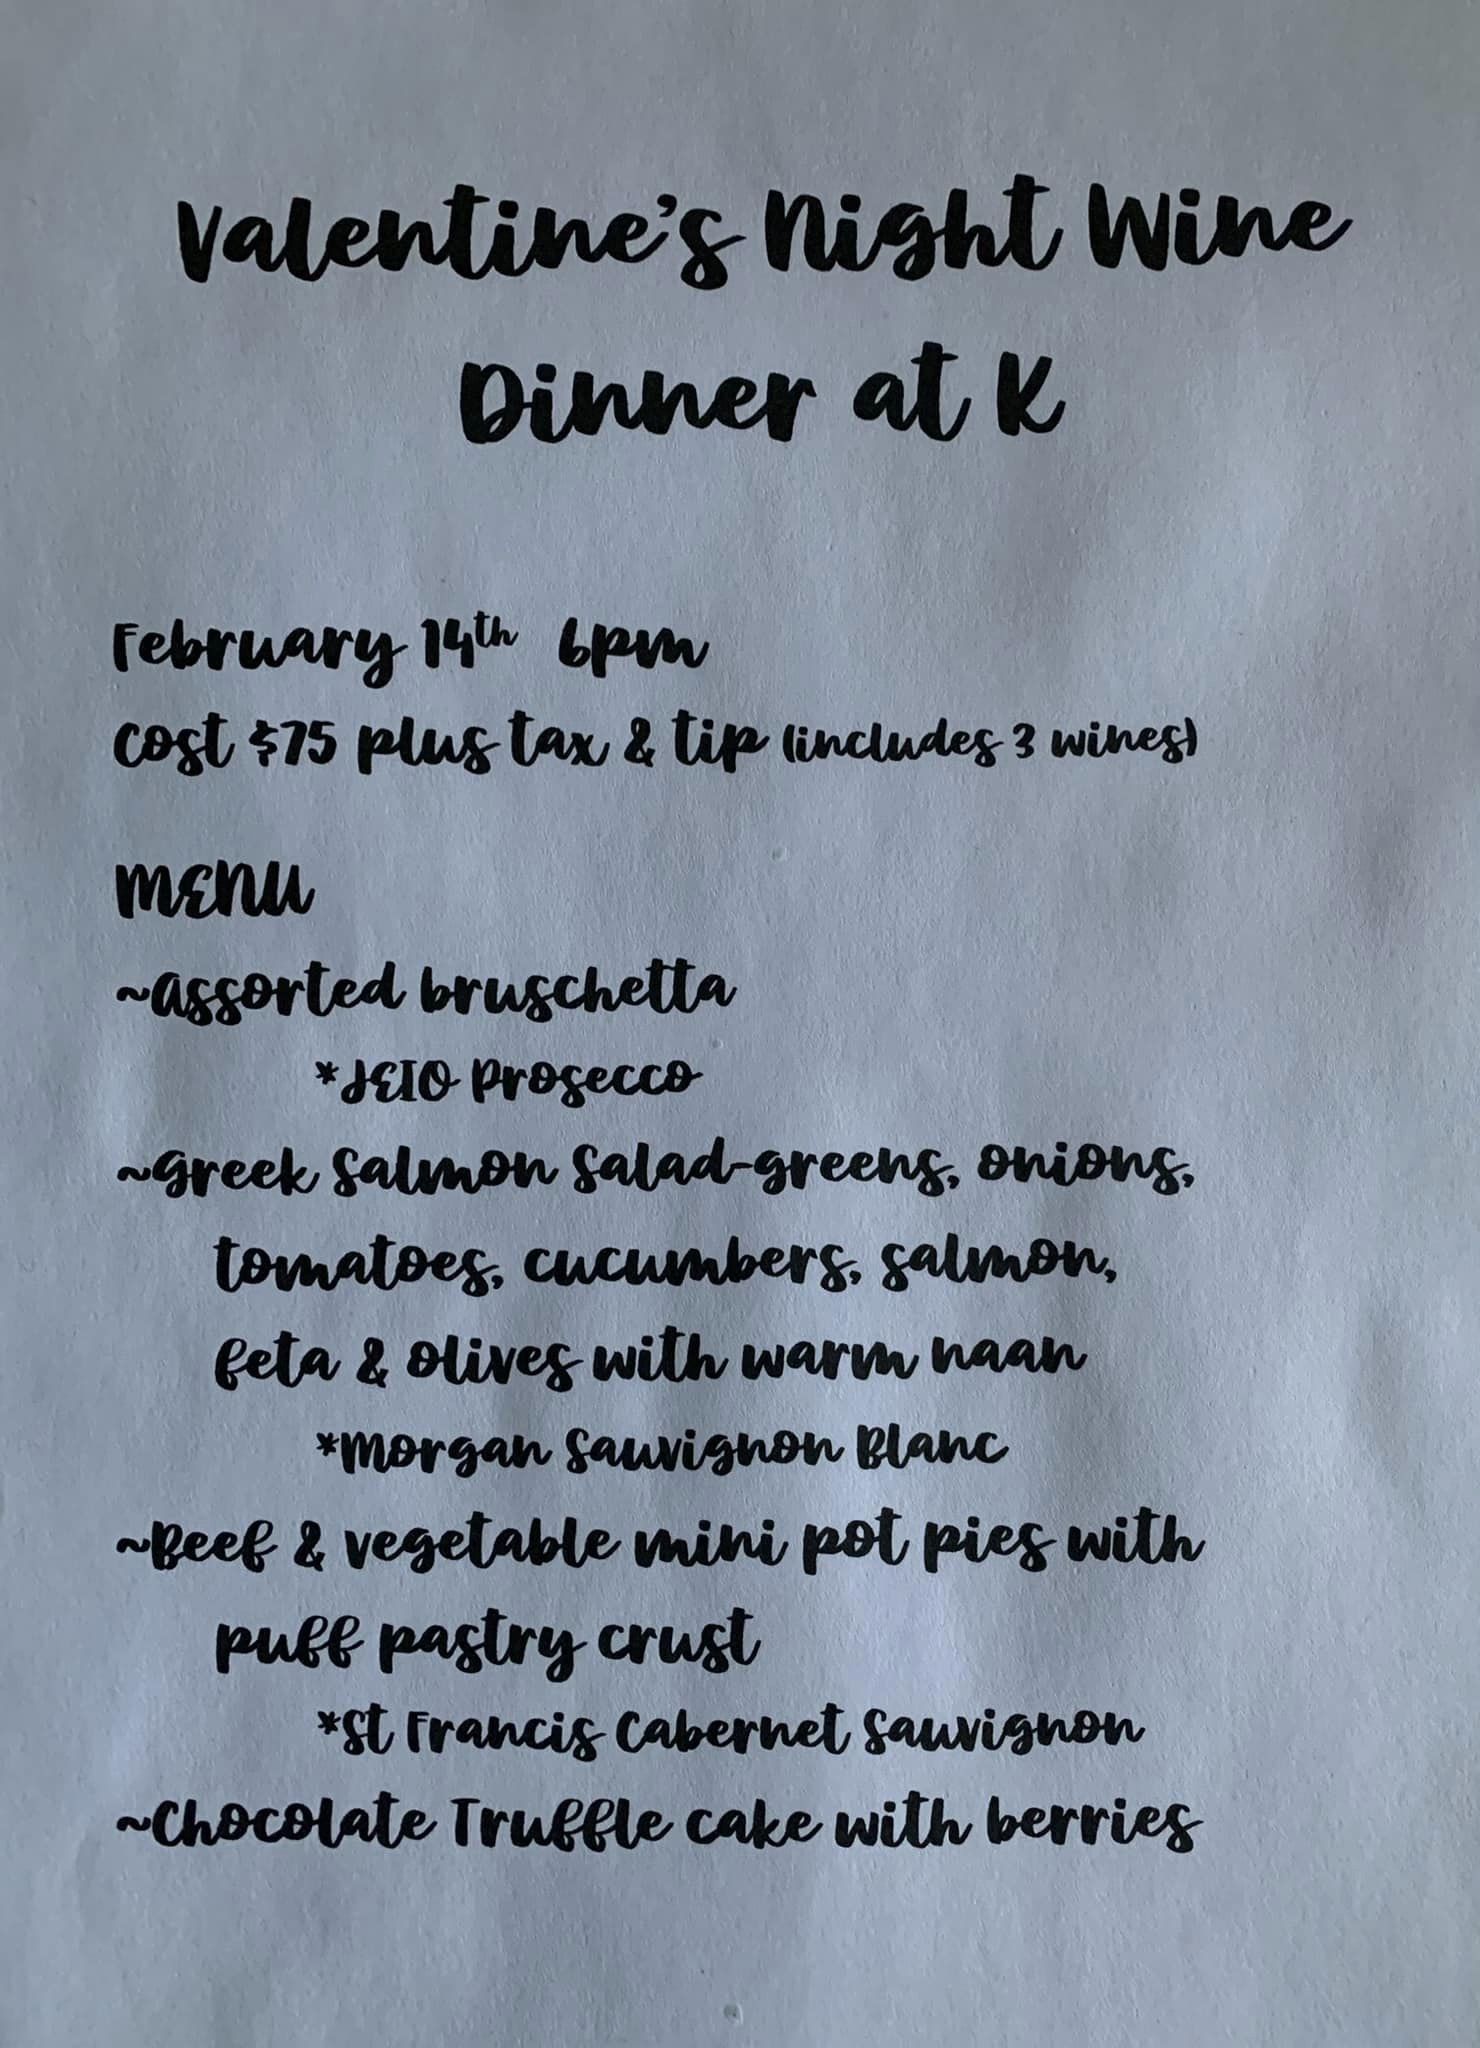 Valentine's Night Wine
Dinner at K
February 14th 6pm
Cost $75 plus tax & tip (includes 3 wines)
MENU
~Assorted bruschetta
*JEIO Prosecco
~Greek Salmon Salad-greens, onions,
tomatoes, cucumbers, salmon,
feta & olives with warm naan
*Morgan Sauvignon Blanc
~Beef & vegetable mini pot pies with
puff pastry crust
*St Francis Cabernet Sauvignon
~Chocolate Truffle cake with berries